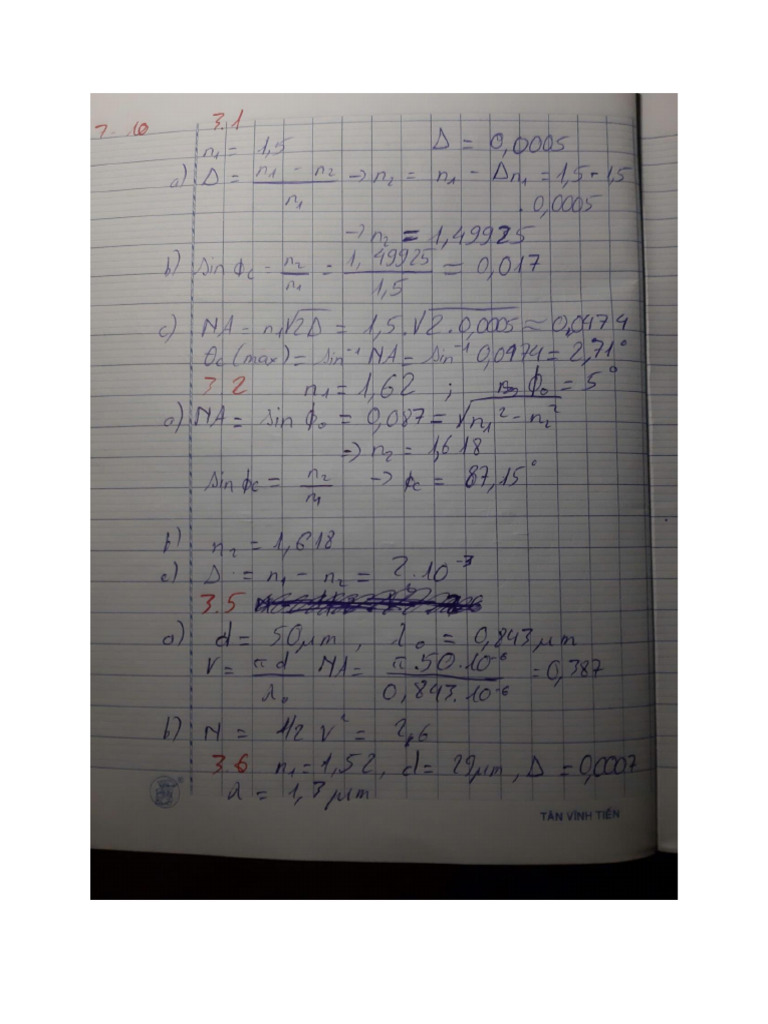 7-10 3.1
n₁ = 1,5 Δ = 0,0005
a) Δ = (n₁ - n₂)/n₁ → n₂ = n₁ - Δn₁ = 1,5 - 1,5
. 0,0005
→ n₂ = 1,49925
b) sin ϕc = n₂/n₁ = 1,49925/1,5 = 0,017
c) NA = n₁√2Δ = 1,5.√2.0,0005 ≈ 0,0474
θc(max) = sin⁻¹ NA = sin⁻¹ 0,0474 = 2,71°
3.2 n₁ = 1,62 ; ϕ₀ = 5°
a) NA = sin ϕ₀ = 0,087 = √n₁² - n₂²
⇒ n₂ = 1,618
sin ϕc = n₂/n₁ → ϕc = 87,15°
b) n₂ = 1,618
c) Δ = n₁ - n₂ = 2.10⁻³
3.5
a) d = 50μm , λ₀ = 0,843μm
V = πd/λ₀ NA = π.50.10⁻⁶/0,843.10⁻⁶ = 0,387
b) N = 1/2 V² = 2,6
3.6 n₁ = 1,52, d = 29μm, Δ = 0,0007
λ = 1,3μm
TÂN VĨNH TIẾN